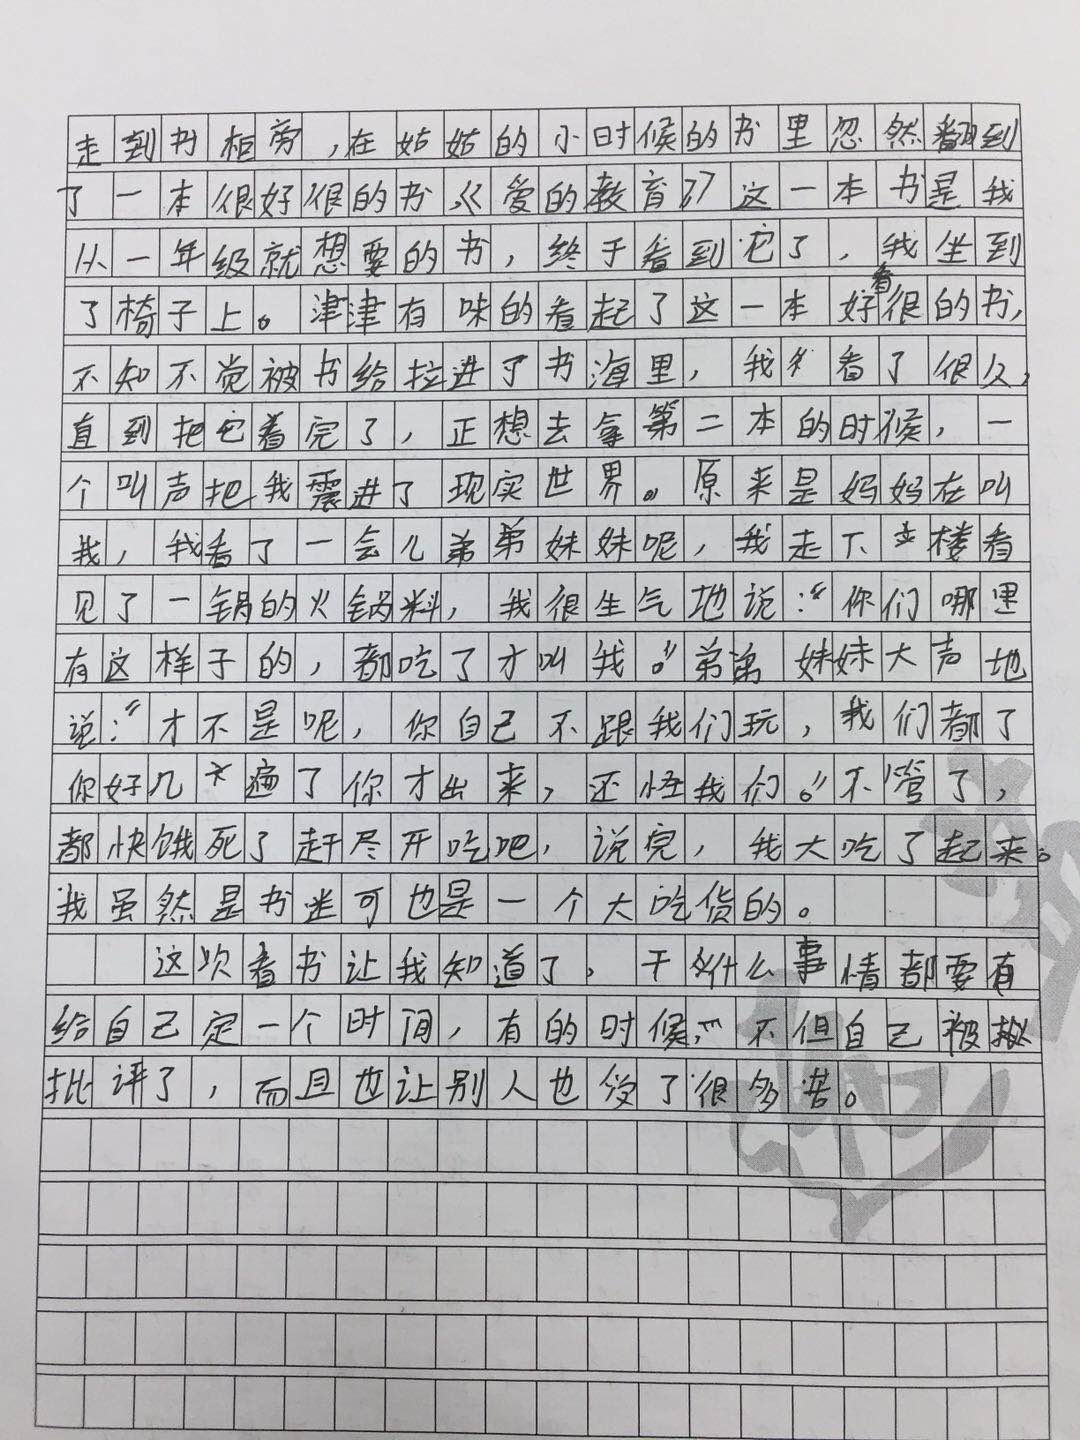 走到书柜旁,在姑姑的小时候的书里忽然翻到
了一本很好很的书《爱的教育》这一本书是我
从一年级就想要的书,终于看到它了,我坐到
了椅子上。津津有味的看起了这一本好看很的书,
不知不觉被书给拉进了书海里,我看了很久,
直到把它看完了,正想去拿第二本的时候,一
个叫声把我震进了现实世界。原来是妈妈在叫
我,我看了一会儿弟弟妹妹呢,我走下楼看
见了一锅的火锅料,我很生气地说:“你们哪里
有这样子的,都吃了才叫我。”弟弟妹妹大声地
说:“才不是呢,你自己不跟我们玩,我们都了
你好几遍了你才出来,还怪我们。”不管了,
都快饿死了赶尽开吃吧,说完,我大吃了起来。
我虽然是书迷可也是一个大吃货的。
这次看书让我知道了,干什么事情都要有
给自己定一个时间,有的时候,不但自己被
批评了,而且也让别人也受了很多苦。